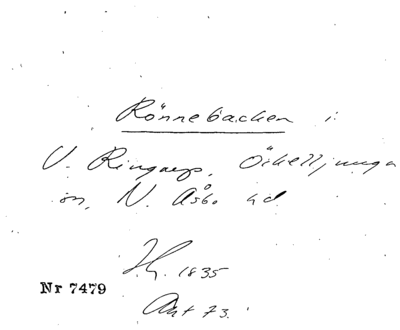 Rönnebacken i
V. Ringarp, Örkelljunga
sn, N. Åsbo hd
Hy. 1835
Nr 7479
Akt 73.